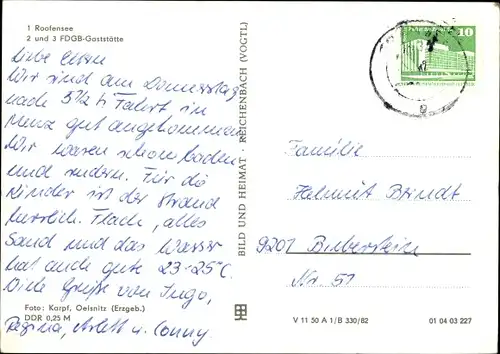 1 Roofensee
2 und 3 FDGB-Gaststätte
Liebe Eltern
Wir sind am Donnerstag
nach 5 1/2 h Fahrt in
Menz gut angekommen
Wir waren schon baden
und rudern. Für die
Kinder ist der Strand
herrlich. Flach, alles
Sand und das Wasser
hat auch gute 23-25°C.
Viele Grüße von Ingo,
Regina, Arlett u. Conny.
Foto: Karpf, Oelsnitz (Erzgeb.)
DDR 0,25 M
BILD UND HEIMAT · REICHENBACH (VOGTL)
10
Familie
Helmut Brindt
9201 Bieberstein
Nr. 51
V 11 50 A 1/B 330/82 01 04 03 227